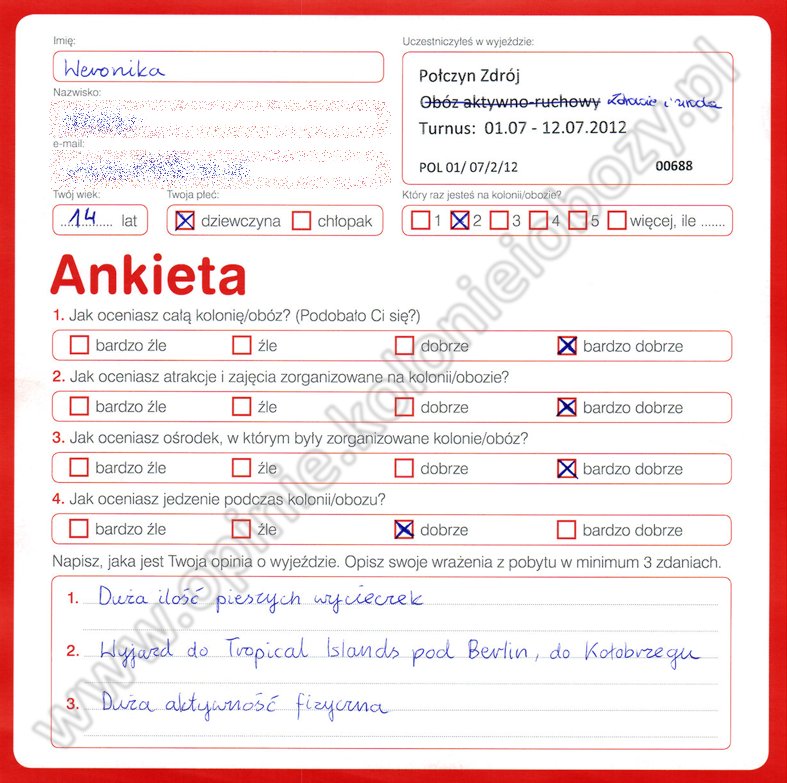 Imię:
Weronika
Nazwisko:
e-mail:
Twój wiek:
14 lat
Twoja płeć:
dziewczyna chłopak
Uczestniczyłeś w wyjeździe:
Połczyn Zdrój
Obóz aktywno-ruchowy Zdrowie i uroda
Turnus: 01.07 - 12.07.2012
POL 01/ 07/2/12 00688
Który raz jesteś na kolonii/obozie?
1 2 3 4 5 więcej, ile .......
Ankieta
1. Jak oceniasz całą kolonię/obóz? (Podobało Ci się?)
bardzo źle źle dobrze bardzo dobrze
2. Jak oceniasz atrakcje i zajęcia zorganizowane na kolonii/obozie?
bardzo źle źle dobrze bardzo dobrze
3. Jak oceniasz ośrodek, w którym były zorganizowane kolonie/obóz?
bardzo źle źle dobrze bardzo dobrze
4. Jak oceniasz jedzenie podczas kolonii/obozu?
bardzo źle źle dobrze bardzo dobrze
Napisz, jaka jest Twoja opinia o wyjeździe. Opisz swoje wrażenia z pobytu w minimum 3 zdaniach.
1. Duża ilość pieszych wycieczek
2. Wyjazd do Tropical Islands pod Berlin, do Kołobrzegu
3. Duża aktywność fizyczna
www.opinie.kolonieiobozy.pl